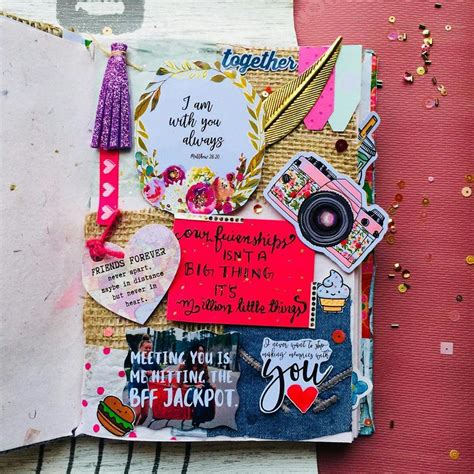 together
I am
with you
always
Matthew 28:20
our friendships
ISN'T A
BIG THING
IT'S
Million little things
FRIENDS FOREVER
never apart,
maybe in distance
but never in
heart.
MEETING YOU IS
ME HITTING THE
BFF JACKPOT.
I never want to stop
making memories with
you